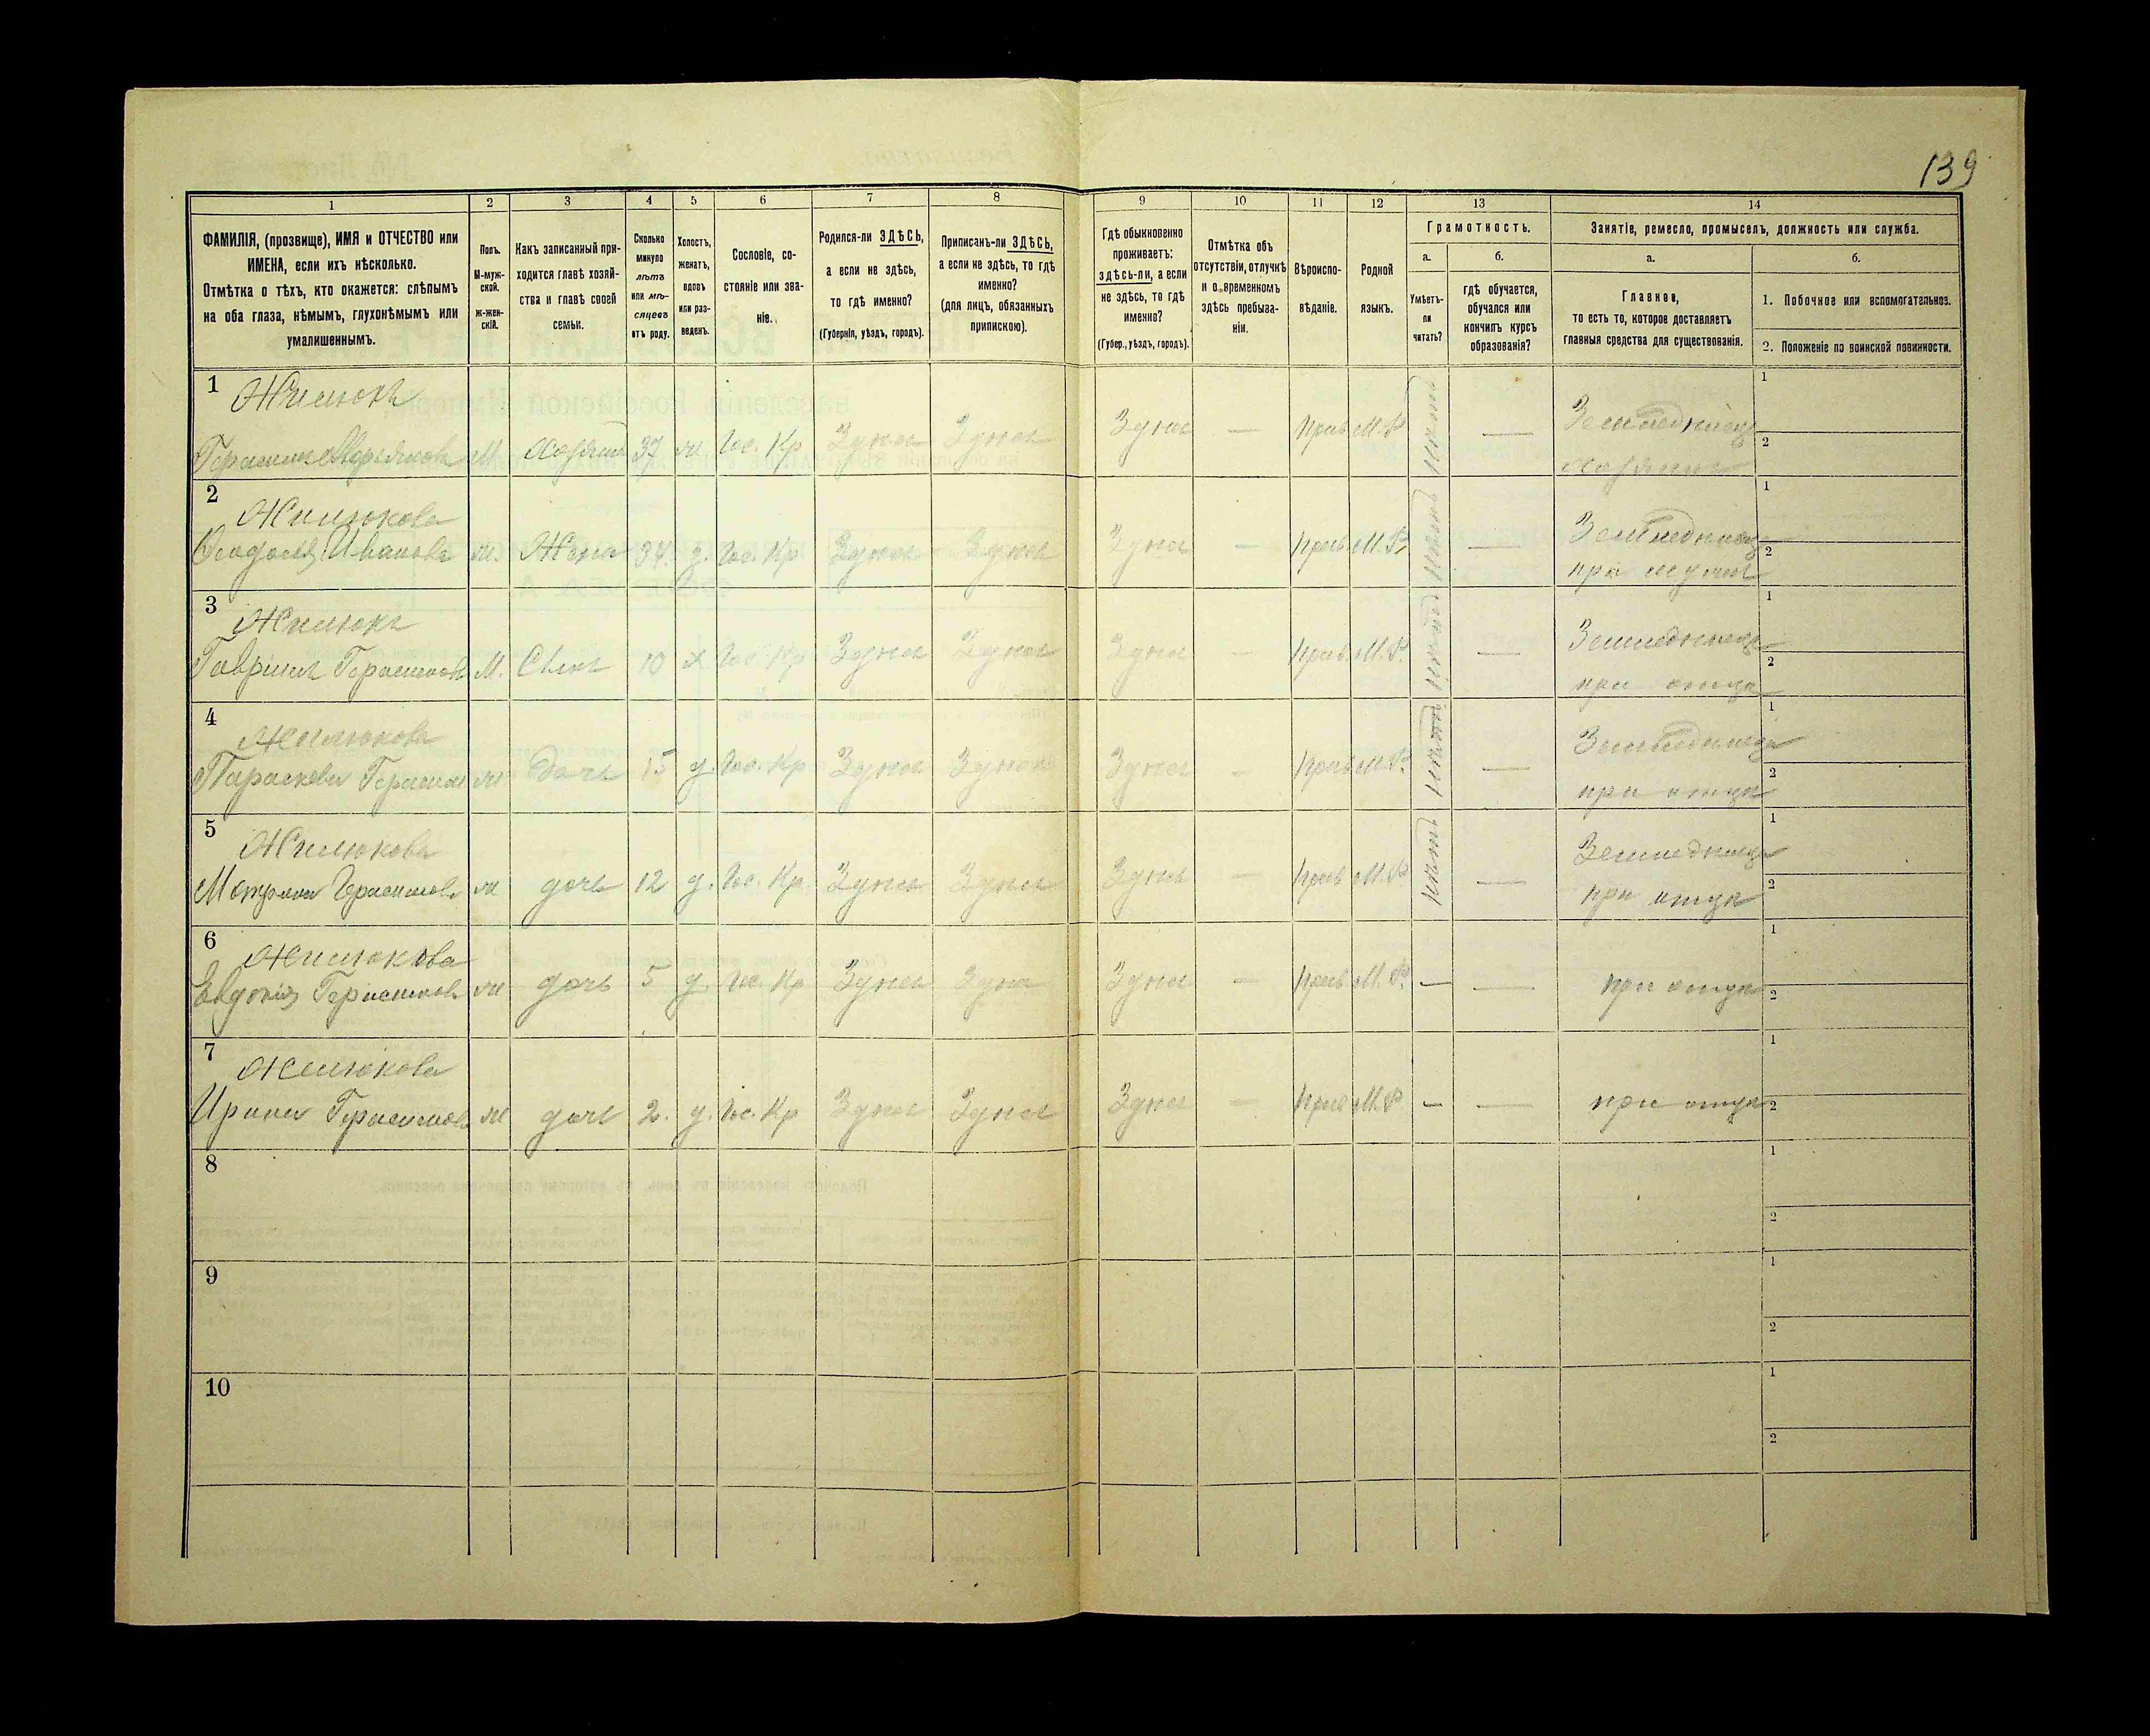 139
1
2
3
4
5
6
7
8
9
10
11
12
13
14
ФАМИЛІЯ, (прозвище), ИМЯ и ОТЧЕСТВО или
ИМЕНА, если ихъ нѣсколько.
Отмѣтка о тѣхъ, кто окажется: слѣпымъ
на оба глаза, нѣмымъ, глухонѣмымъ или
умалишеннымъ.
Полъ.
М-муж-
ской.
ж-жен-
скій.
Какъ записанный при-
ходится главѣ хозяй-
ства и главѣ своей
семьи.
Сколько
минуло
лѣтъ
или мѣ-
сяцевъ
отъ роду.
Холостъ,
женатъ,
вдовъ
или раз-
веденъ.
Сословіе, со-
стояніе или зва-
ніе.
Родился-ли ЗДѢСЬ,
а если не здѣсь,
то гдѣ именно?
(Губернія, уѣздъ, городъ).
Приписанъ-ли ЗДѢСЬ,
а если не здѣсь, то гдѣ
именно?
(для лицъ, обязанныхъ
припискою).
Гдѣ обыкновенно
проживаетъ:
здѣсь-ли, а если
не здѣсь, то гдѣ
именно?
(Губер., уѣздъ, городъ).
Отмѣтка объ
отсутствіи, отлучкѣ
и о временномъ
здѣсь пребыва-
ніи.
Вѣроиспо-
вѣданіе.
Родной
языкъ.
Грамотность.
а.
Умѣетъ-
ли
читать?
б.
гдѣ обучается,
обучался или
кончилъ курсъ
образованія?
Занятіе, ремесло, промыселъ, должность или служба.
а.
Главное,
то есть то, которое доставляетъ
главныя средства для существованія.
б.
1. Побочное или вспомогательное.
2. Положеніе по воинской повинности.
1
Жилюкъ
Герасимъ М Хозяинъ 37 ж Гос. Кр Здѣсь Здѣсь Здѣсь — Прав М.Р. нѣтъ — Земледѣлецъ
хозяинъ
1
2
2
Жилюкова
Феодосія Иванова ж. Жена 34 з. Гос. Кр Здѣсь Здѣсь Здѣсь — Прав. М.Р. нѣтъ — Земледѣлецъ
при мужѣ
1
2
3
Жилюкъ
Гавріилъ Герасимовъ М. Сынъ 10 х Гос. Кр Здѣсь Здѣсь Здѣсь — Прав. М.Р. нѣтъ — Земледѣлецъ
при отцѣ
1
2
4
Жилюкова
Параскева Герасим ж Дочь 15 д. Гос. Кр Здѣсь Здѣсь Здѣсь — Прав М.Р. нѣтъ — Земледѣлецъ
при отцѣ
1
2
5
Жилюкова
Матрона Герасимова ж дочь 12 д. Гос. Кр. Здѣсь Здѣсь Здѣсь — Прав М.Р. нѣтъ — Земледѣлецъ
при отцѣ
1
2
6
Жилюкова
Евдокія Герасимова ж дочь 5 д. Гос. Кр Здѣсь Здѣсь Здѣсь — Прав М.Р. — — при отцѣ
1
2
7
Жилюкова
Ирина Герасимова ж дочь 2. д. Гос. Кр Здѣсь Здѣсь Здѣсь — Прав М.Р — — при отцѣ
1
2
8
1
2
9
1
2
10
1
2